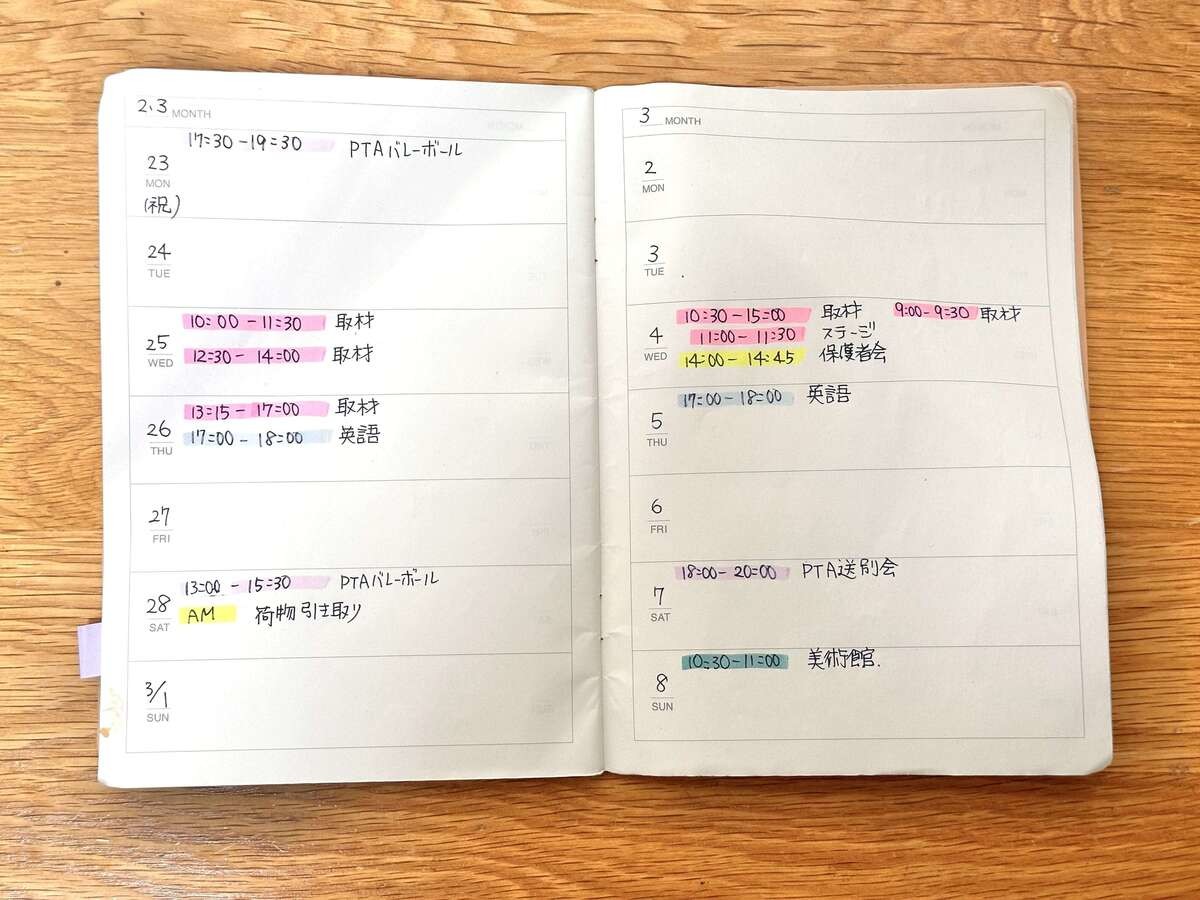 2.3 MONTH
23 17:30-19:30 PTAバレーボール
MON
(祝)
24
TUE
25 10:00-11:30 取材
WED 12:30-14:00 取材
26 13:15-17:00 取材
THU 17:00-18:00 英語
27
FRI
28 13:00-15:30 PTAバレーボール
SAT AM 荷物引き取り
3/1
SUN
3 MONTH
2
MON
3
TUE
4 10:30-15:00 取材 9:00-9:30 取材
11:00-11:30 ステージ
WED 14:00-14:45 保護者会
5 17:00-18:00 英語
THU
6
FRI
7 18:00-20:00 PTA送別会
SAT
8 10:30-11:00 美術館.
SUN